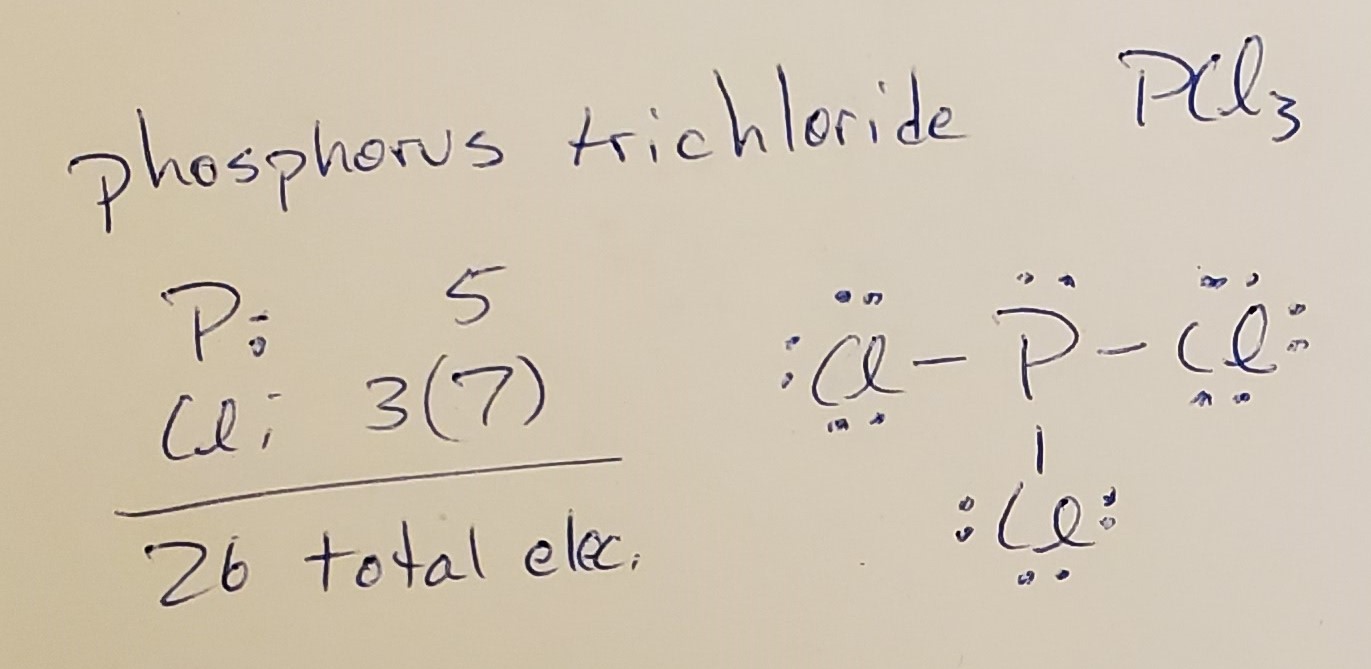 phosphorus trichloride PCl₃
P: 5
Cl: 3(7)
26 total elec.
Cl – P – Cl
|
Cl